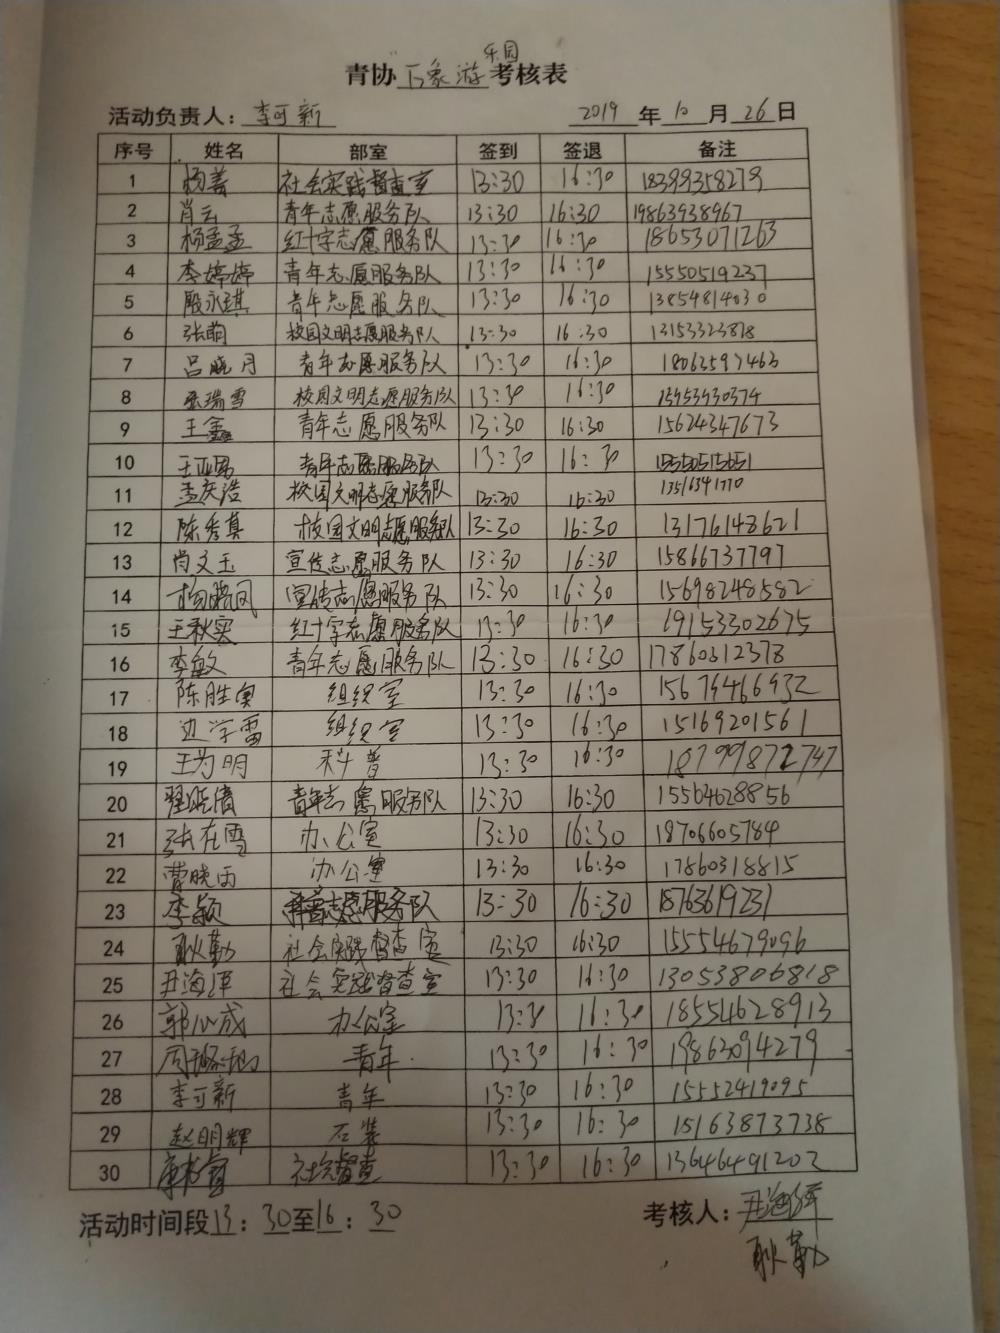 青协万象游乐园考核表
活动负责人：李可新 2019 年 10 月 26 日
序号 姓名 部室 签到 签退 备注
1 杨善 社会实践督查室 13:30 16:30 18399358279
2 肖云 青年志愿服务队 13:30 16:30 19863938967
3 杨孟孟 红十字志愿服务队 13:30 16:30 18653071263
4 李婷婷 青年志愿服务队 13:30 16:30 15550519237
5 殷永琪 青年志愿服务队 13:30 16:30 13854814030
6 张萌 校园文明志愿服务队 13:30 16:30 13153323878
7 吕晓月 青年志愿服务队 13:30 16:30 18063597463
8 张瑞雪 校园文明志愿服务队 13:30 16:30 15953930374
9 王鑫 青年志愿服务队 13:30 16:30 15624347673
10 王亚男 青年志愿服务队 13:30 16:30 15550515651
11 孟庆浩 校园文明志愿服务队 13:30 16:30 13516341770
12 陈秀真 校园文明志愿服务队 13:30 16:30 13176148621
13 肖文玉 宣传志愿服务队 13:30 16:30 15866737797
14 杨晓凤 宣传志愿服务队 13:30 16:30 15698248582
15 王秋实 红十字志愿服务队 13:30 16:30 19153302675
16 李敏 青年志愿服务队 13:30 16:30 17860312378
17 陈胜奥 组织室 13:30 16:30 15679466932
18 边学雪 组织室 13:30 16:30 15169201561
19 王为明 科普 13:30 16:30 18799872747
20 青年志愿服务队 13:30 16:30 15564628856
21 张在雪 办公室 13:30 16:30 18706605784
22 曹晓雨 办公室 13:30 16:30 17860318815
23 李颖 志愿服务队 13:30 16:30 18763619231
24 耿勤 社会实践督查室 13:30 16:30 15554679096
25 尹海泽 社会实践督查室 13:30 16:30 13053806818
26 郭心成 办公室 13:30 16:30 18554628913
27 青年 13:30 16:30 19863094279
28 李可新 青年 13:30 16:30 15552419095
29 赵明辉 石莲 13:30 16:30 15163873738
30 社会督查 13:30 16:30 13646491202
活动时间段13：30至16：30 考核人：尹海泽
耿勤